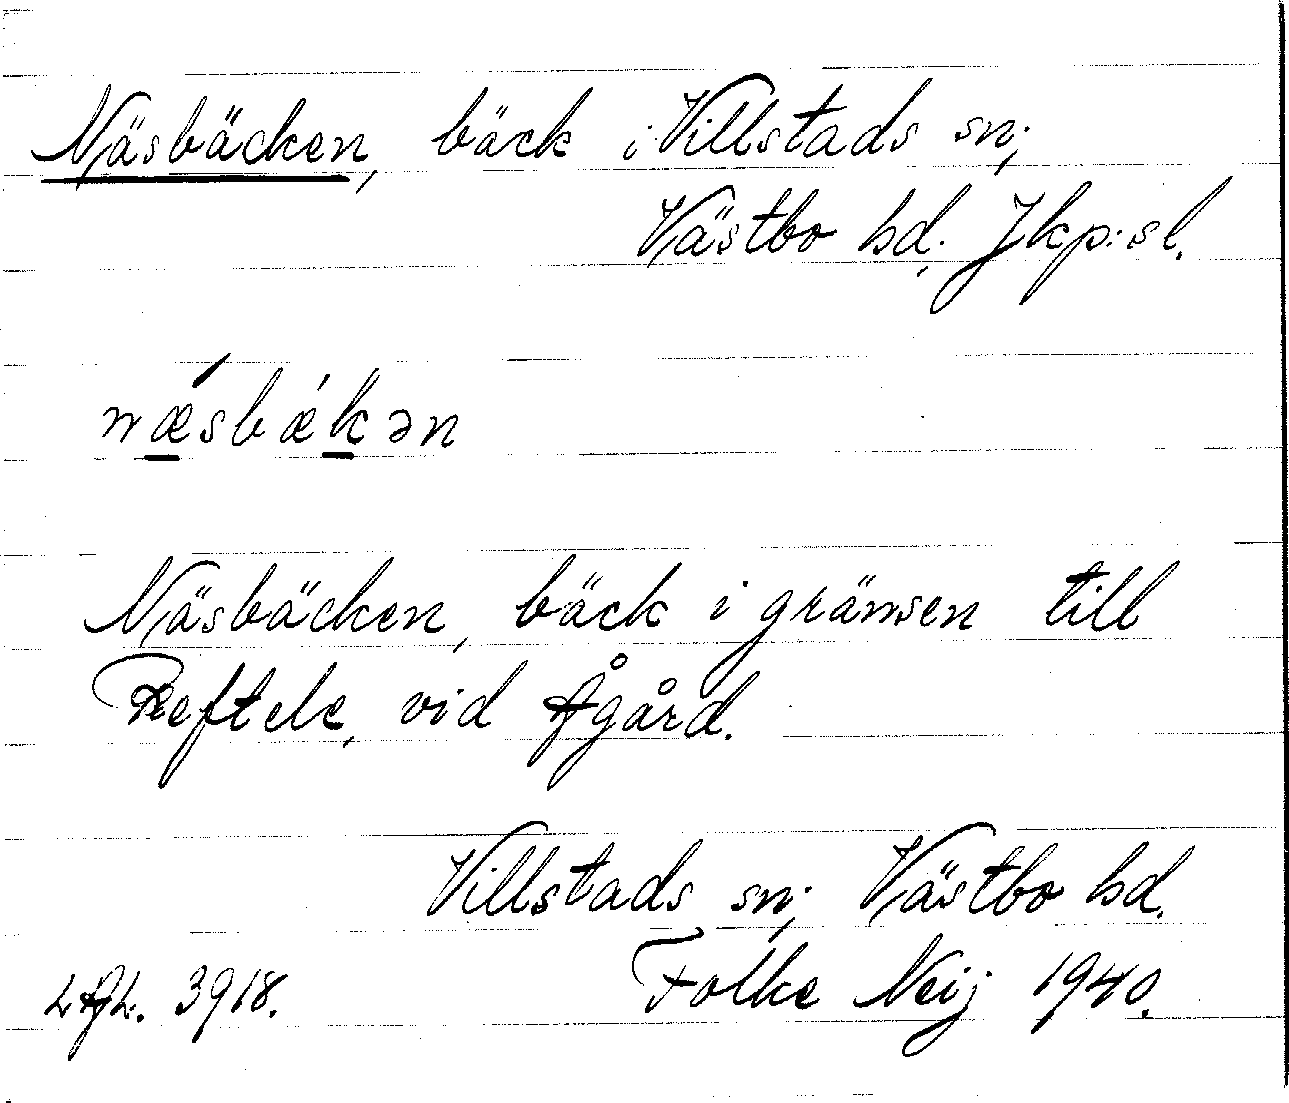 Näsbäcken, bäck i Villstads sn;
Västbo hd; Jkp:sl.
nǽ̲sbǽk̲ən
Näsbäcken, bäck i gränsen till
Reftele, vid Ågård.
Villstads sn; Västbo hd.
LAL. 3918. Folke Neij 1940.